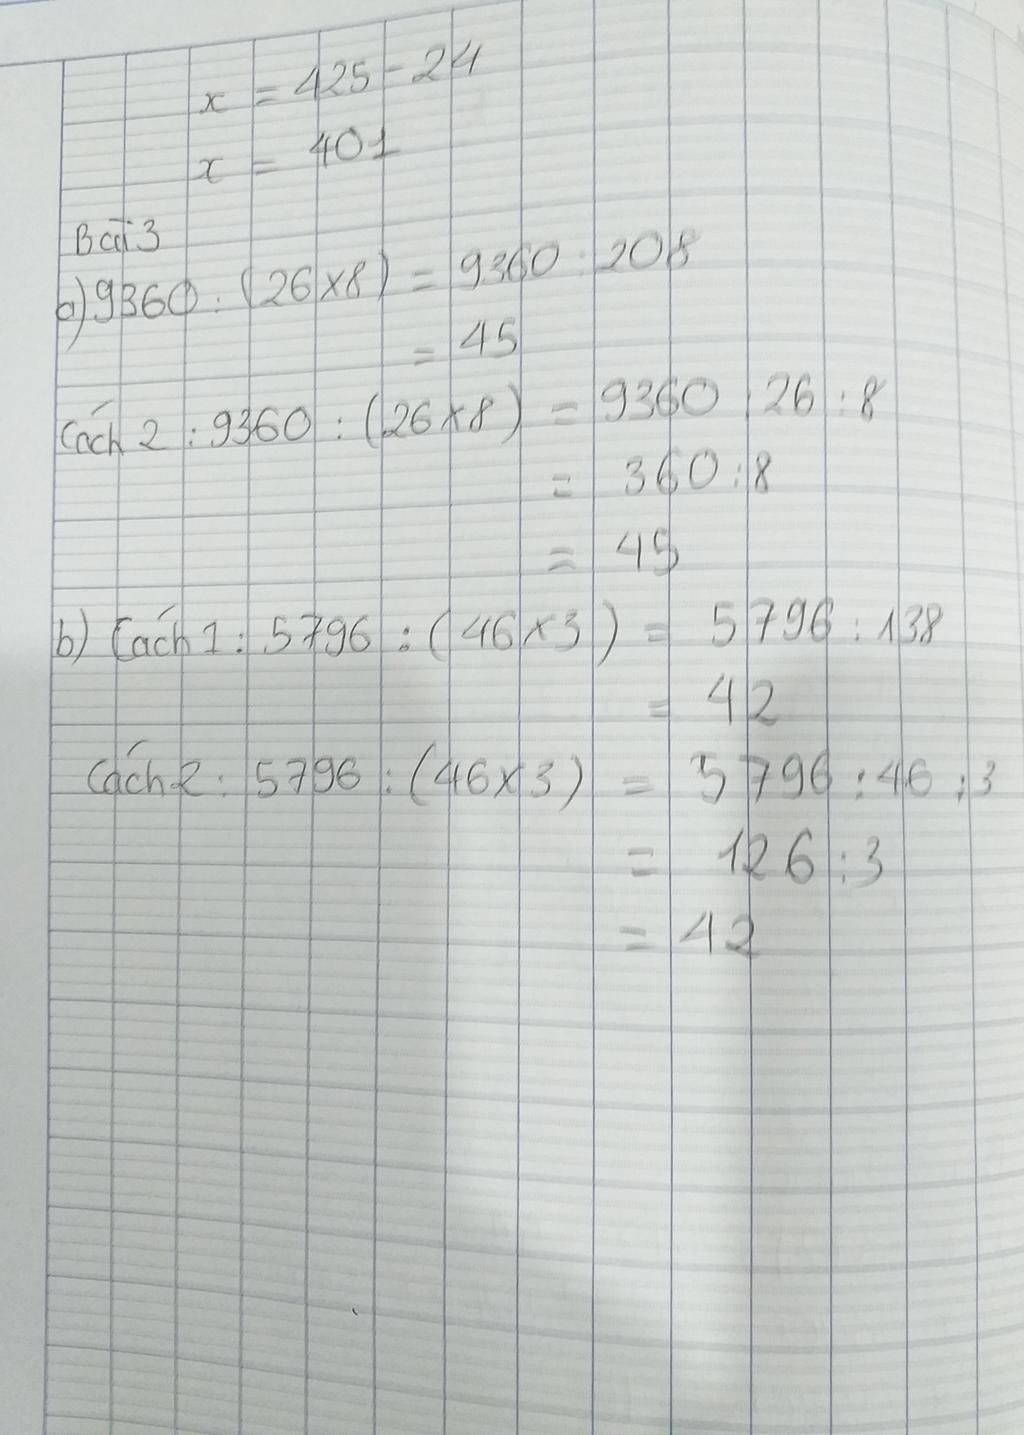 x = 425 - 24
x = 401
Bài 3
a) 9360 : (26 x 8) = 9360 : 208
= 45
Cách 2 : 9360 : (26 x 8) = 9360 : 26 : 8
= 360 : 8
= 45
b) Cách 1 : 5796 : (46 x 3) = 5796 : 138
= 42
Cách 2 : 5796 : (46 x 3) = 5796 : 46 : 3
= 126 : 3
= 42